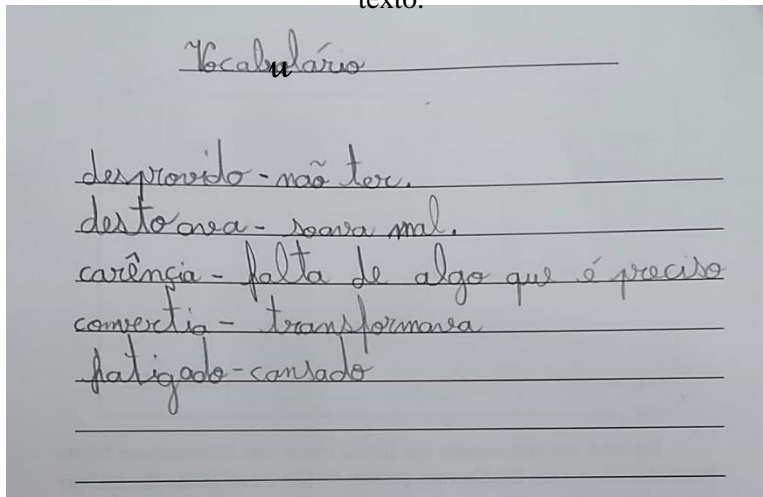 texto.
Vocabulário
desprovido - não ter.
destoava - soava mal.
carência - falta de algo que é preciso
convertia - transformava
fatigado - cansado